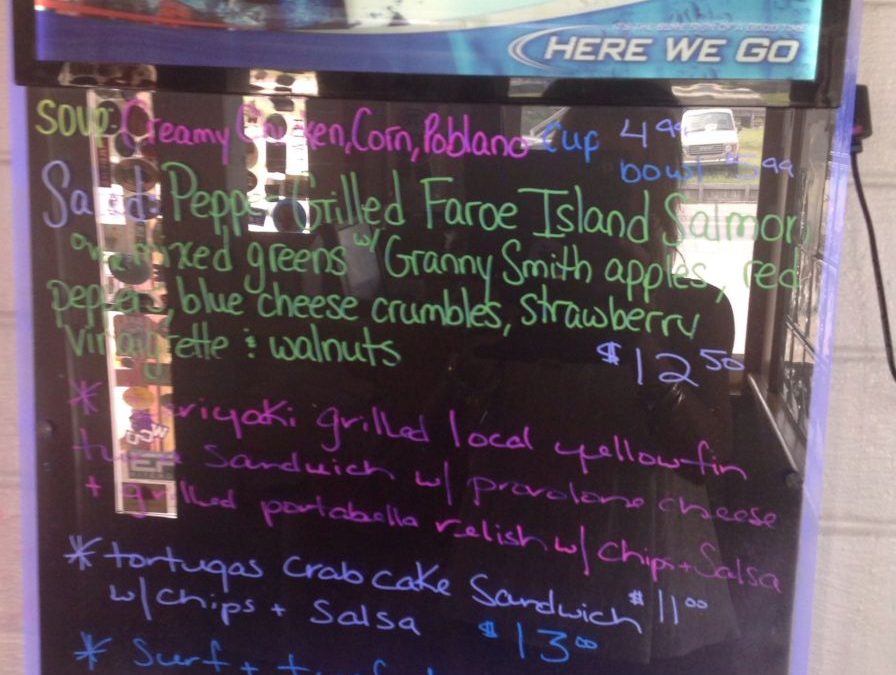 HERE WE GO
Soup: Creamy Chicken, Corn, Poblano Cup 4.99
bowl 5.99
Salad: Pepper Grilled Faroe Island Salmon
over mixed greens w/ Granny Smith apples, red
peppers, blue cheese crumbles, strawberry
vinaigrette & walnuts $12.50
* teriyaki grilled local yellowfin
tuna sandwich w/ provolone cheese
+ grilled portabella relish w/ chips + Salsa
$11.00
* tortugas crab cake Sandwich
w/ chips + Salsa $13.00
* Surf +